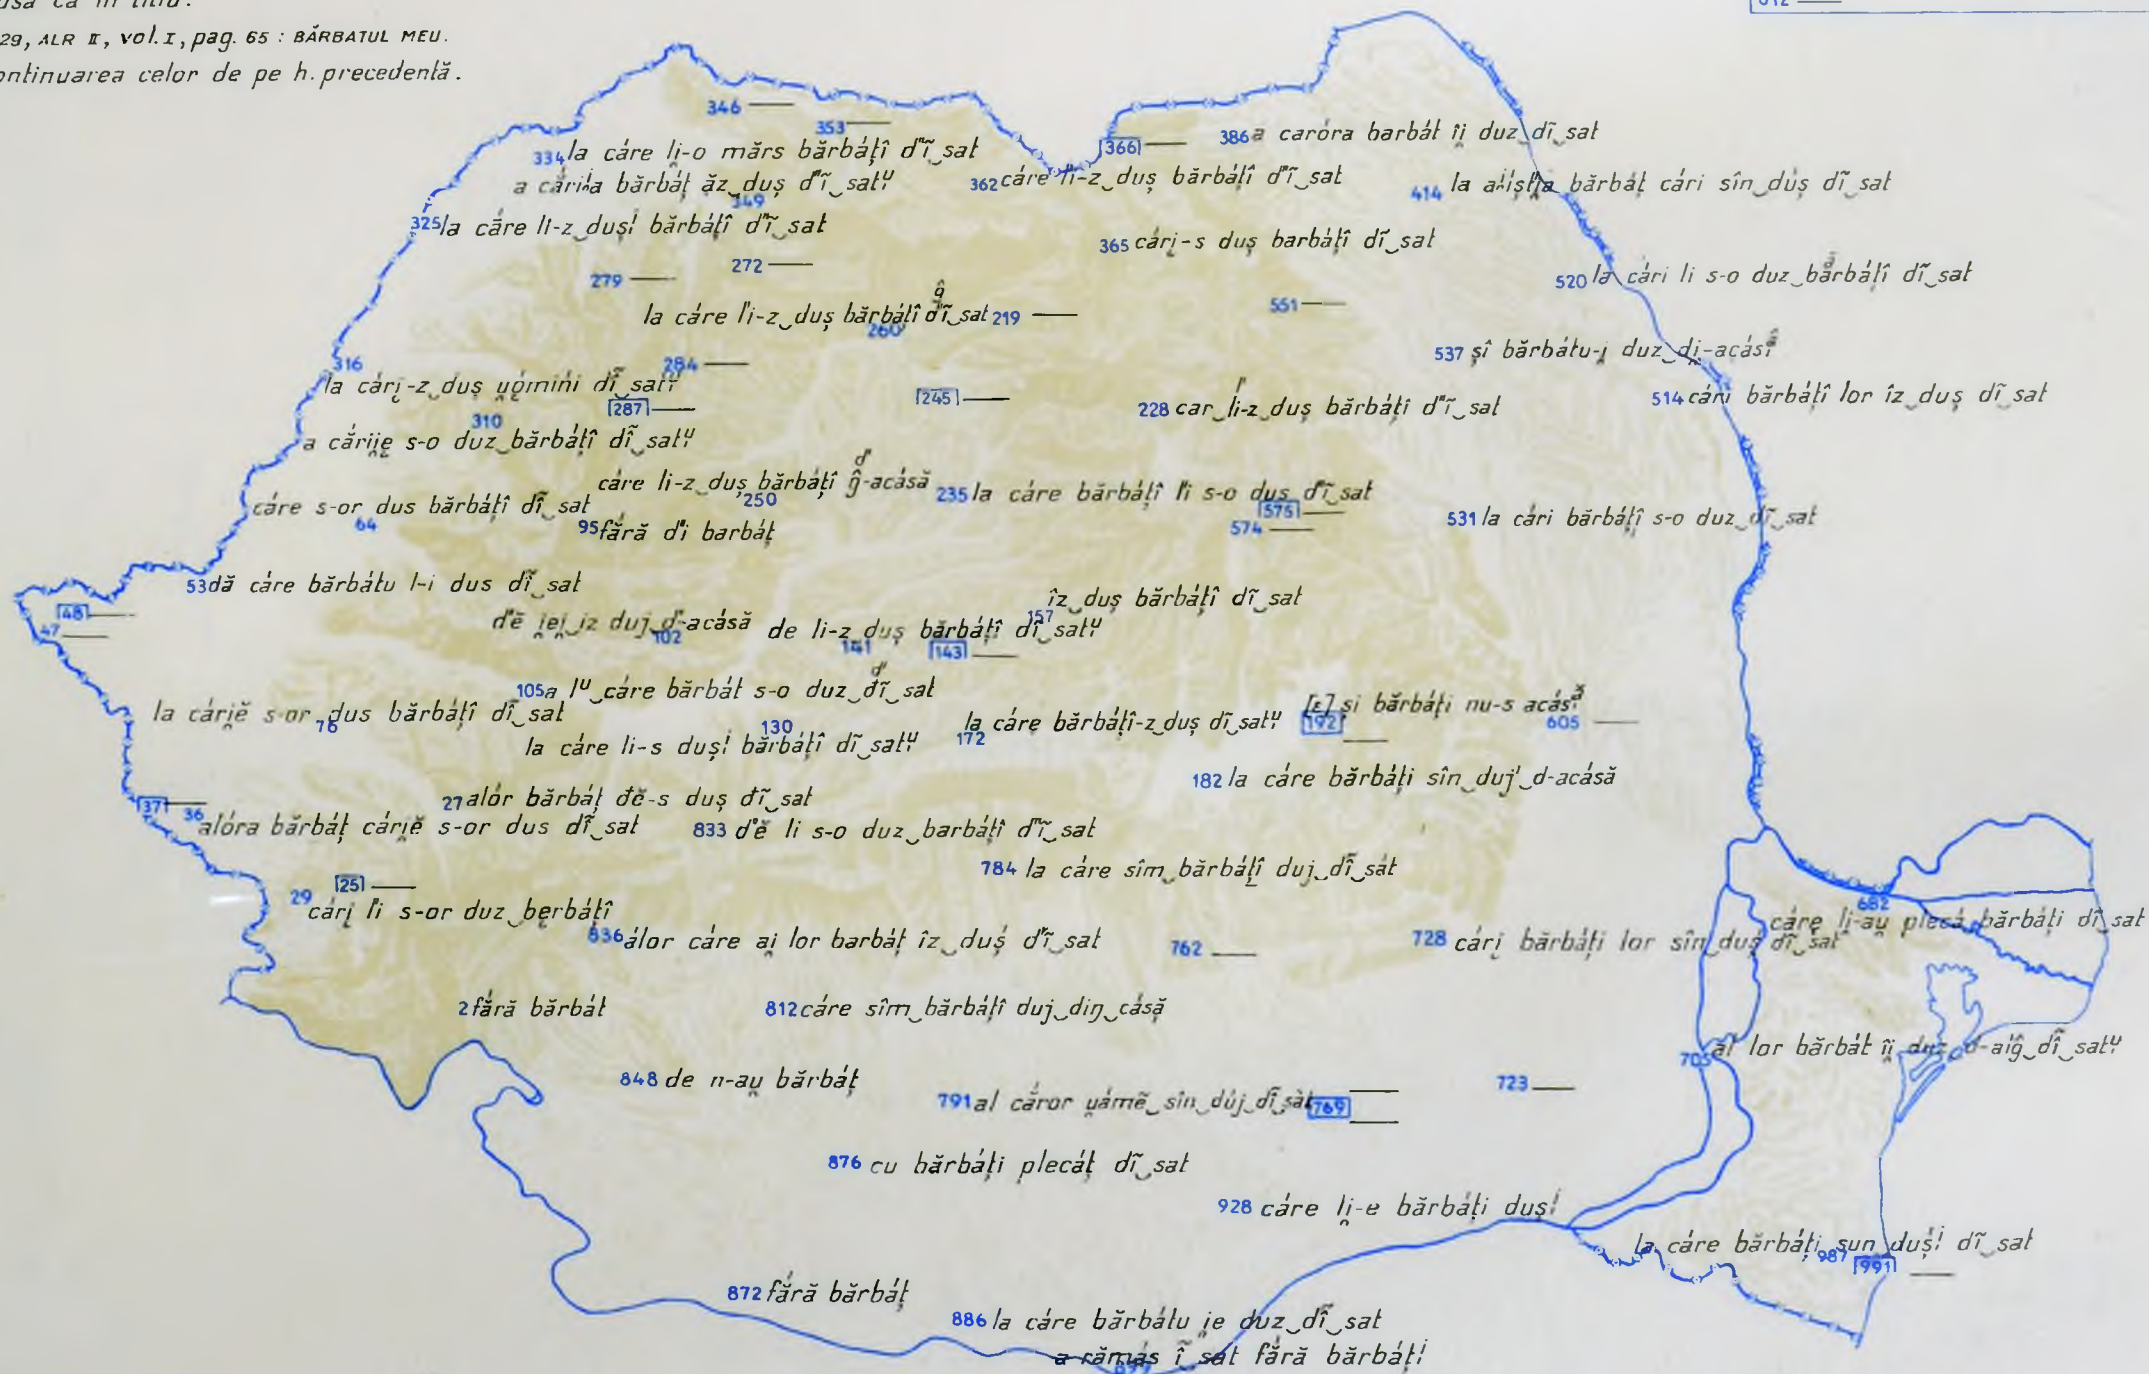 29, ALR II, vol. I, pag. 65 : BĂRBATUL MEU.
continuarea celor de pe h. precedentă.
346 —
353 —
334 la cáre l̦i-o mărs bărbáțî d'ĩ‿sat
[366] —
386 a caróra barbát îi̯ duz‿dĩ‿sat
349 bărbáț ăz‿duș d'ĩ‿satᵘ
362 cáre l'i-z‿duș bărbáțî d'ĩ‿sat
414 la bărbáț cári sîn‿dúș dĩ‿sat
325 la cắre lI-z‿dușⁱ bărbáțî d'ĩ‿sat
365 cári̯-s duș barbáțî dĩ‿sat
272 —
279 —
520 la cári li s-o duz‿bărbáțî dĩ‿sat
260 la cáre l'i-z‿duș bărbáțî d'ĩ‿sat
219 —
551 —
537 șî bărbátu-i̯ duz‿di̯-acásă
316 la cári̯-z‿duș u̯ói̯mińi dĩ‿satᵘ
284 —
[287] —
[245] —
228 car‿l̦i-z‿duș bărbáțî d'ĩ‿sat
514 cári bărbáțî lor îz‿duș dĩ‿sat
310 a cării̯e s-o duz‿bărbáțî dĩ‿satᵘ
250 cáre li-z‿duș bărbáțî ĝ-acásă
235 la cáre bărbáțî l'i s-o dus d'ĩ‿sat
64 cáre s-or dus bărbáțî dĩ‿sat
95 fără d'i barbáț
[575] —
574 —
531 la cári bărbáțî s-o duz‿dĩ‿sat
53 dă cáre bărbátu l-i dus dĩ‿sat
[48] —
47 —
157 îz‿duș bărbáțî dĩ‿sat
102 d'ĕ i̯ei̯‿iz duj‿d'-acásă
141 de li-z‿duș bărbáțî dĩ‿satᵘ
[143] —
105 a lᵘ‿cáre bărbát s-o duz‿dĩ‿sat
76 la cári̯ĕ s-or dus bărbáțî dĩ‿sat
130 la cáre li-s dușⁱ bărbáțî dĩ‿satᵘ
172 la cáre bărbáțî-z‿duș dĩ‿satᵘ
[192] [ε] și bărbáți nu-s acásă
—
605 —
182 la cáre bărbáți sîn‿duj'‿d-acásă
[37] —
27 alór bărbáț đĕ-s duș đĩ‿sat
36 alóra bărbáț cári̯ĕ s-or dus dĩ‿sat
833 d'ĕ li s-o duz‿barbáțî d'ĩ‿sat
784 la cáre sîm‿bărbáțî duj‿dĩ‿sát
[25] —
29 cári̯ l'i s-or duz‿be̦rbáțî
836 álor cáre ai̯ lor barbáț îz‿duș d'ĩ‿sat
762 —
728 cári̯ bărbáți lor sîn‿duș dĩ‿sat
682 cáre l̦i-au̯ plecá‿bărbáți dĩ‿sat
2 fắră bărbát
812 cáre sîm‿bărbáțî duj‿diŋ‿cásă
705 al lor bărbát îi̯ duz‿d-aiĝ‿dĩ‿satᵘ
848 de n-au̯ bărbáț
791 al cắror u̯ámĕ‿sîn‿dúj‿dĩ‿sát
[769] —
—
723 —
876 cu bărbáți plecáț dĩ‿sat
928 cáre l̦i-e bărbáți dușⁱ
987 la cáre bărbáți‿sun dușⁱ dĩ‿sat
[991] —
872 fắră bărbáț
886 la cáre bărbátu i̯e duz‿dĩ‿sat
a rămás ĩ‿sat fắră bărbáțⁱ